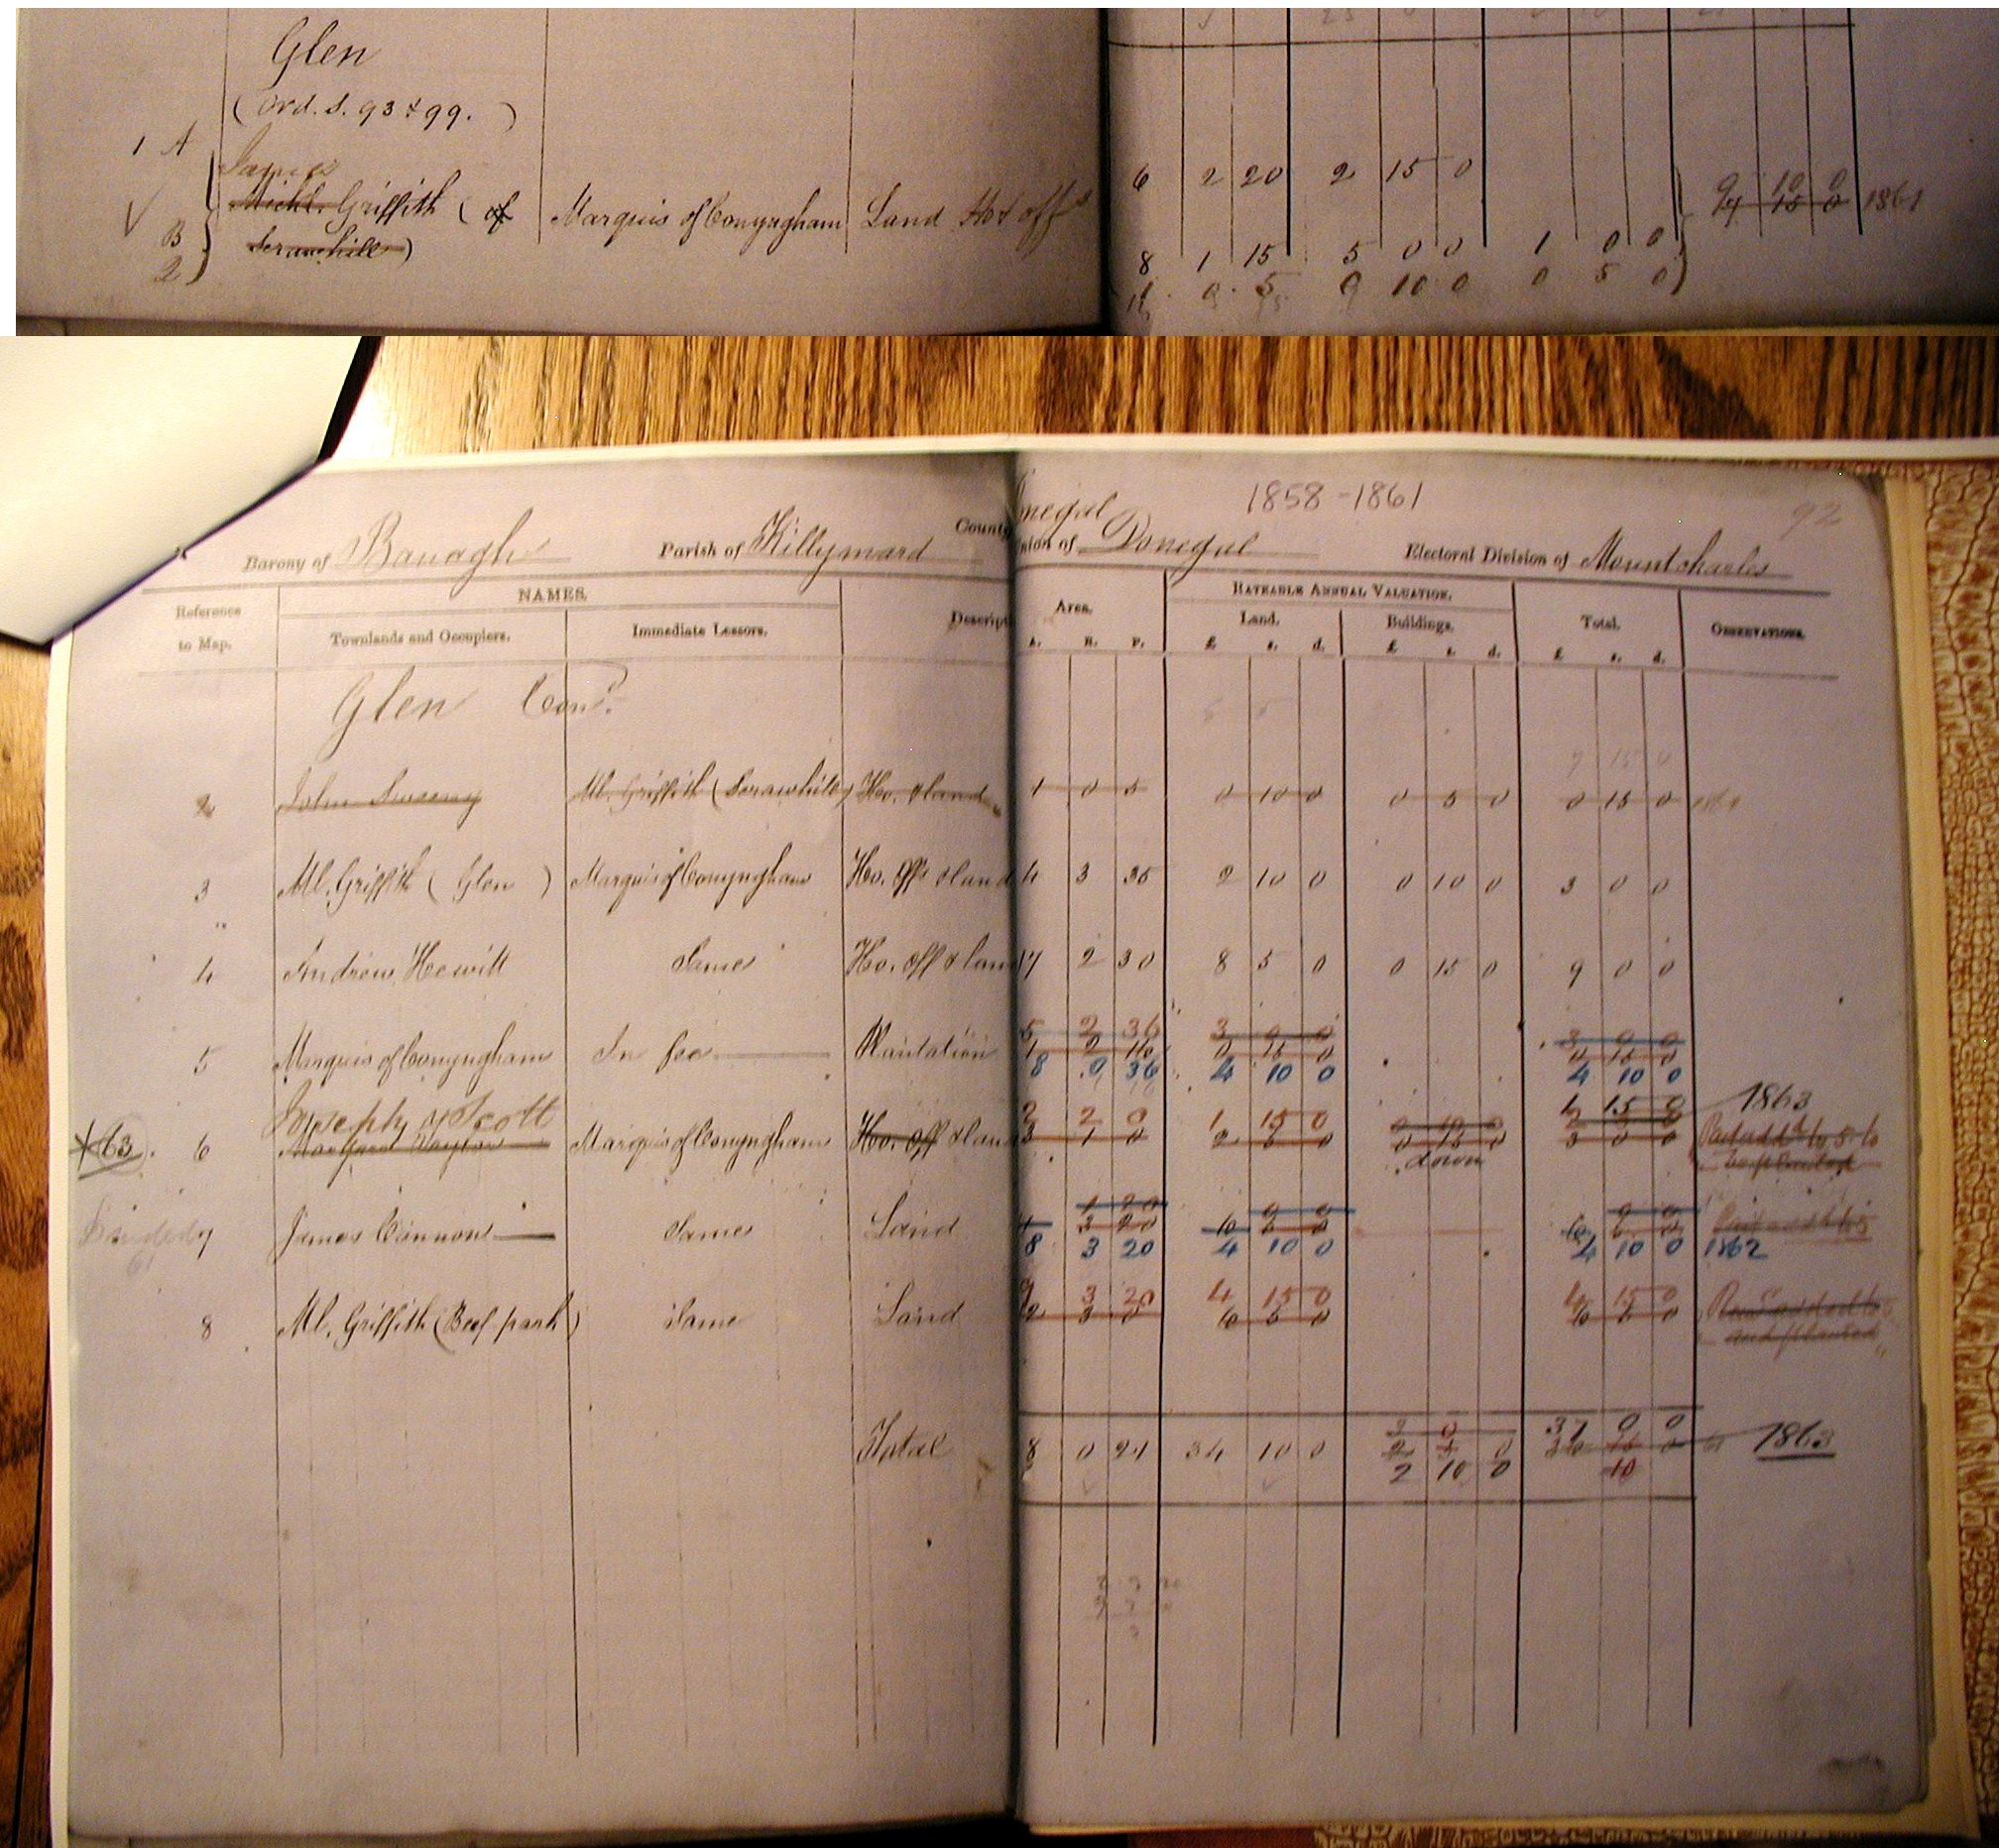 Glen
(Ord. S. 93 & 99.)
1 A
James
Michl. Griffith (of Marquis of Conyngham Land Ho & offs
B Scrawhill)
2
6 2 20 2 15 0
9 10 0
9 15 0 1861
8 1 15 5 0 0 1 0 0
0 5 0 10 0 0 5 0
1858-1861
92
County Donegal
Barony of Banagh Parish of Killymard Union of Donegal Electoral Division of Mountcharles
Reference to Map. NAMES. Area. RATEABLE ANNUAL VALUATION. Total. OBSERVATIONS.
Townlands and Occupiers. Immediate Lessors. Descript A. R. P. Land. Buildings.
£ s. d. £ s. d. £ s. d.
Glen Cond.
9 15 0
2 John Sweeny Ml. Griffith (Scrawhill) Ho. & land 1 0 5 0 10 0 0 5 0 0 15 0
3 Ml. Griffith (Glen) Marquis of Conyngham Ho. offs & land 4 3 35 2 10 0 0 10 0 3 0 0
4 Andrew Hewitt Same Ho. off & land 7 2 30 8 5 0 0 15 0 9 0 0
5 2 36 3 0 0 3 0 0
5 Marquis of Conyngham In fee Plantation 1 2 16 0 15 0 0 15 0
8 0 36 4 10 0 4 10 0
Joseph Scott 2 2 0 1 15 0 1 15 0 1863
63 6 Margaret Marquis of Conyngham Ho. off & land 3 1 0 2 5 0 0 15 0 3 0 0
down
1 20 0 0 0 0
7 James Connon Same Land 4 3 20 6 5 0 6 5 0
61 8 3 20 4 10 0 4 10 0 1862
9 3 20 4 15 0 4 15 0
8 Ml. Griffith (Beef park) Same Land 2 3 0 6 5 0 6 5 0
3 0 37 0 0
Total 8 0 21 34 10 0 1863
2 10 0 10